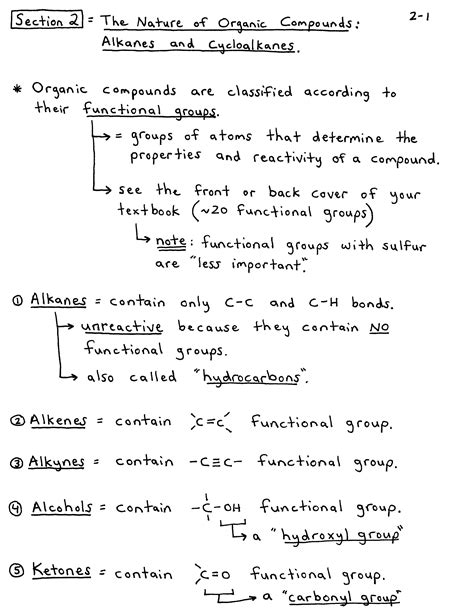 Section 2 = The Nature of Organic Compounds: 2-1
Alkanes and Cycloalkanes.
* Organic compounds are classified according to
their functional groups.
→ = groups of atoms that determine the
properties and reactivity of a compound.
→ see the front or back cover of your
textbook (~20 functional groups)
→ note: functional groups with sulfur
are "less important".
① Alkanes = contain only C-C and C-H bonds.
→ unreactive because they contain NO
functional groups.
→ also called "hydrocarbons".
② Alkenes = contain C=C functional group.
③ Alkynes = contain -C≡C- functional group.
④ Alcohols = contain -C-OH functional group.
→ a "hydroxyl group"
⑤ Ketones = contain C=O functional group.
→ a "carbonyl group"